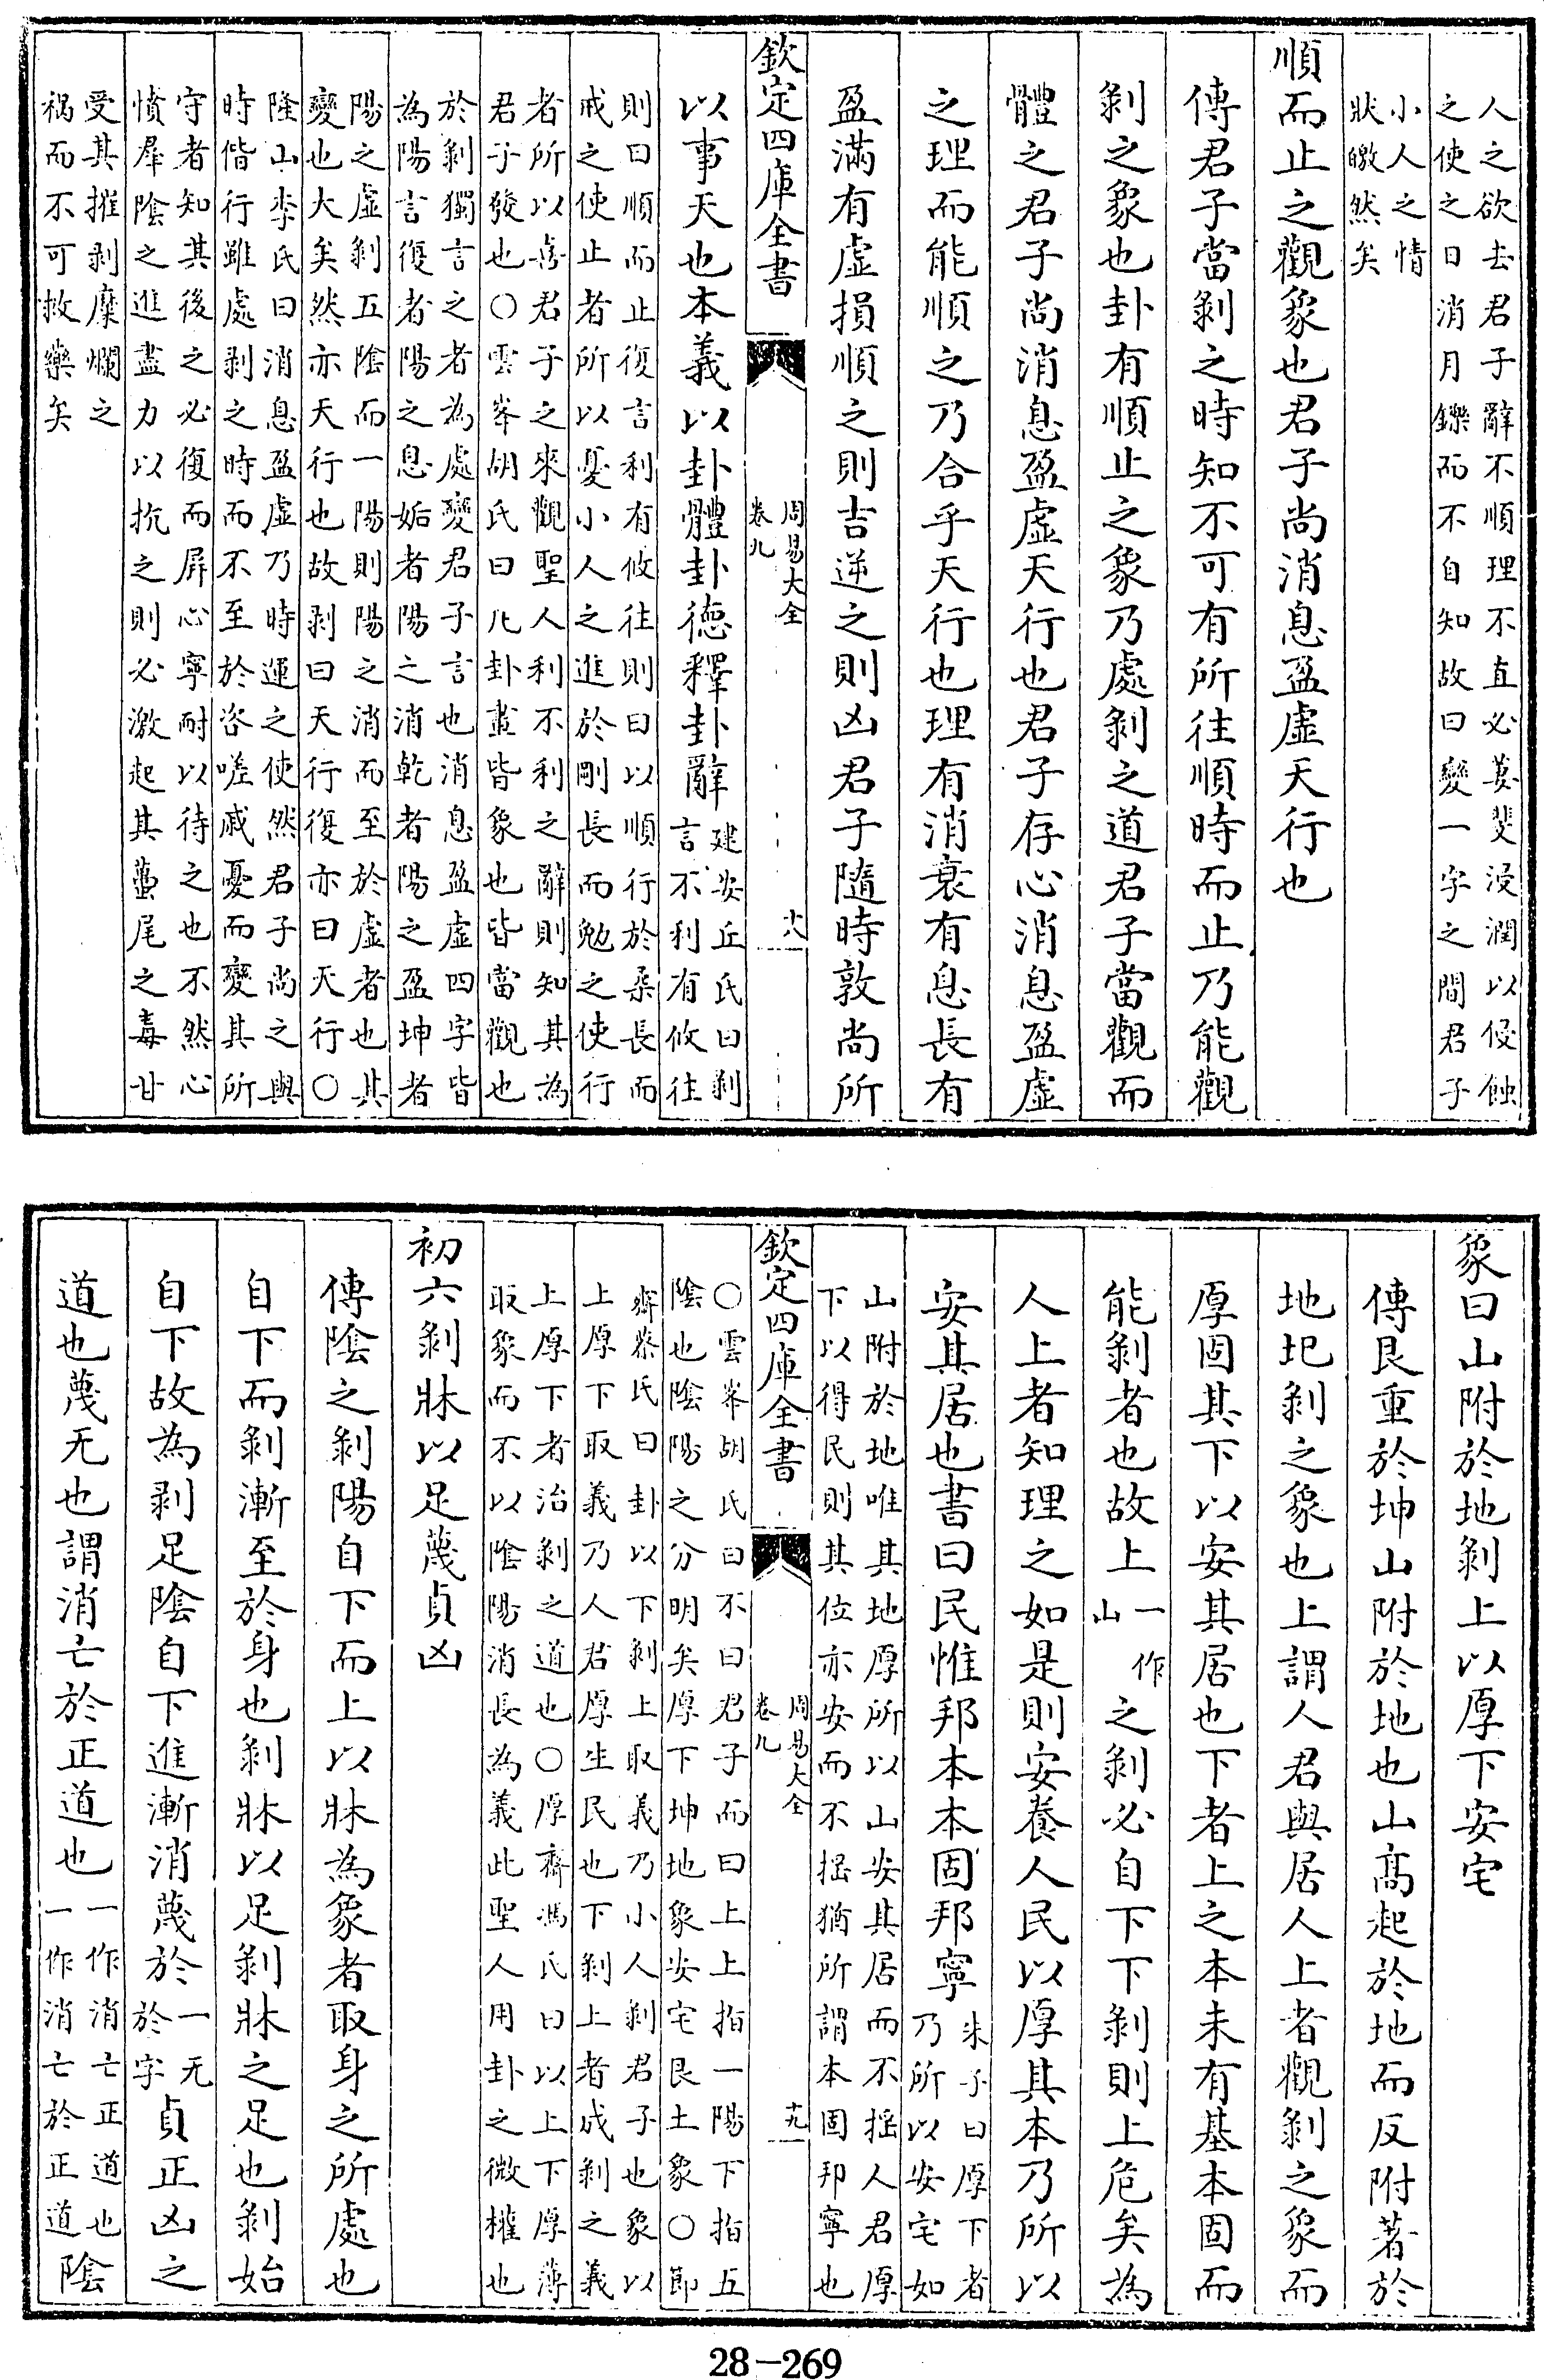 人之欲去君子辭不順理不直必萋斐浸潤以侵蝕
之使之日消月鑠而不自知故曰變一字之間君子
小人之情
狀皦然矣
順而止之觀象也君子尚消息盈虚天行也
傳君子當剝之時知不可有所往順時而止乃能觀
剝之象也卦有順止之象乃處剝之道君子當觀而
體之君子尚消息盈虚天行也君子存心消息盈虚
之理而能順之乃合乎天行也理有消衰有息長有
盈滿有虚損順之則吉逆之則凶君子隨時敦尚所
欽定四庫全書
周易大全
卷九
十八
以事天也本義以卦體卦德釋卦辭
建安丘氏曰剝
言不利有攸往
則曰順而止復言利有攸往則曰以順行於柔長而
戒之使止者所以憂小人之進於剛長而勉之使行
者所以喜君子之來觀聖人利不利之辭則知其為
君子發也○雲峯胡氏曰凡卦畫皆象也皆當觀也
於剝獨言之者為處變君子言也消息盈虚四字皆
為陽言復者陽之息姤者陽之消乾者陽之盈坤者
陽之虚剝五陰而一陽則陽之消而至於虚者也其
變也大矣然亦天行也故剝曰天行復亦曰天行○
隆山李氏曰消息盈虚乃時運之使然君子尚之與
時偕行雖處剝之時而不至於咨嗟戚憂而變其所
守者知其後之必復而屏心寧耐以待之也不然心
憤羣陰之進盡力以抗之則必激起其蠆尾之毒甘
受其摧剥糜爛之
禍而不可救藥矣
象曰山附於地剝上以厚下安宅
傳艮重於坤山附於地也山髙起於地而反附著於
地圯剝之象也上謂人君與居人上者觀剝之象而
厚固其下以安其居也下者上之本未有基本固而
能剝者也故上
一作
山
之剝必自下下剝則上危矣為
人上者知理之如是則安養人民以厚其本乃所以
安其居也書曰民惟邦本本固邦寧
朱子曰厚下者
乃所以安宅如
山附於地唯其地厚所以山安其居而不揺人君厚
下以得民則其位亦安而不揺猶所謂本固邦寧也
欽定四庫全書
周易大全
卷九
十九
○雲峯胡氏曰不曰君子而曰上上指一陽下指五
陰也陰陽之分明矣厚下坤地象安宅艮土象○節
齋蔡氏曰卦以下剝上取義乃小人剝君子也象以
上厚下取義乃人君厚生民也下剝上者成剝之義
上厚下者治剝之道也○厚齋馮氏曰以上下厚薄
取象而不以陰陽消長為義此聖人用卦之微權也
初六剝牀以足蔑貞凶
傳陰之剝陽自下而上以牀為象者取身之所處也
自下而剝漸至於身也剝牀以足剝牀之足也剝始
自下故為剥足陰自下進漸消蔑於
一无
於字
貞正凶之
道也蔑无也謂消亡於正道也
一作消亡正道也
一作消亡於正道
陰
28-269